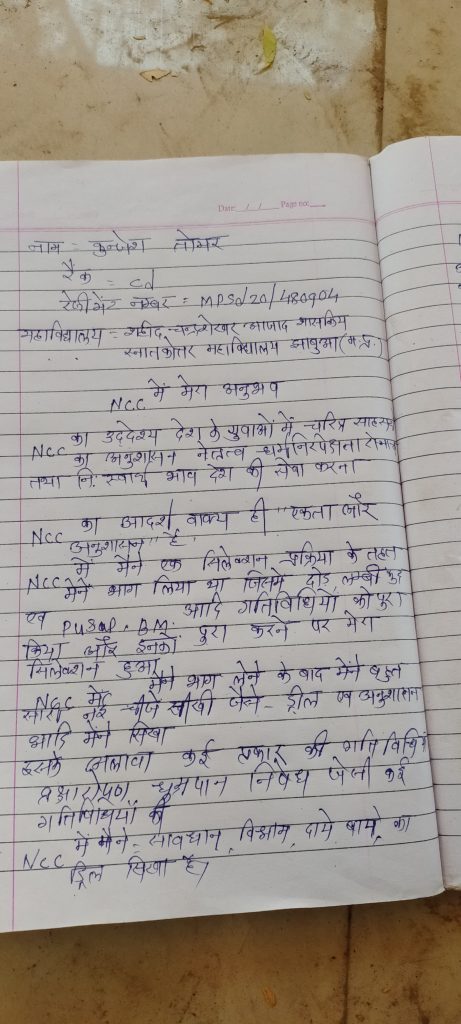 Date / / Page no:
नाम = कुन्जेश तोमर
रैंक = Cd
रेजीमेंट नम्बर = MPSd20/480904
महाविद्यालय = शहीद चन्द्रशेखर आजाद शासकिय
स्नातकोत्तर महाविद्यालय झाबुआ (म.प्र.)
NCC में मेरा अनुभव
NCC का उददेश्य देश के युवाओं में चरित्र साहस
का अनुशासन नेतृत्व धर्मनिरपेक्षता रोमांच
तथा नि.स्वार्थ भाव देश की सेवा करना
NCC का आदर्श वाक्य ही "एकता और
अनुशासन" है
NCC में मैंने एक सिलेक्शन प्रक्रिया के तहत
मैंने भाग लिया था जिसमें दोड़ लम्बी कुद
एव आदि गतिविधियों को पुरा
किया और इनको पुरा करने पर मेरा
सिलेक्शन हुआ
NCC में मैंने भाग लेने के बाद मैंने बहुत
सारी नई चीजे सीखी जैसे - ड्रील एव अनुशासन
आदि मैंने सिखा
इसके अलावा कई प्रकार की गतिविधि
वृक्षारोपण धुम्रपान निषेध जेसी कई
गतिविधियों की
NCC में मैंने - सावधान, विश्राम, दाये बाये, का
ड्रिल सिखा है।